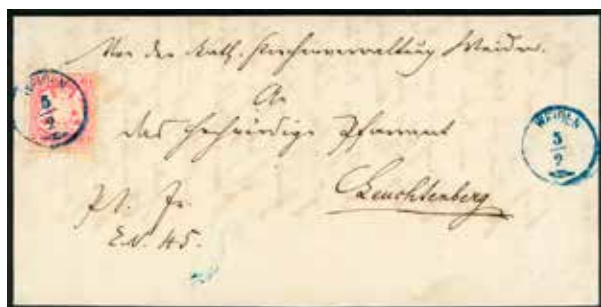 Von der Kath. Kirchenverwaltung Weiden.
An
das hochwürdige Pfarramt
Leuchtenberg
WEIDEN
5/2
WEIDEN
5/2
E.N. 45.